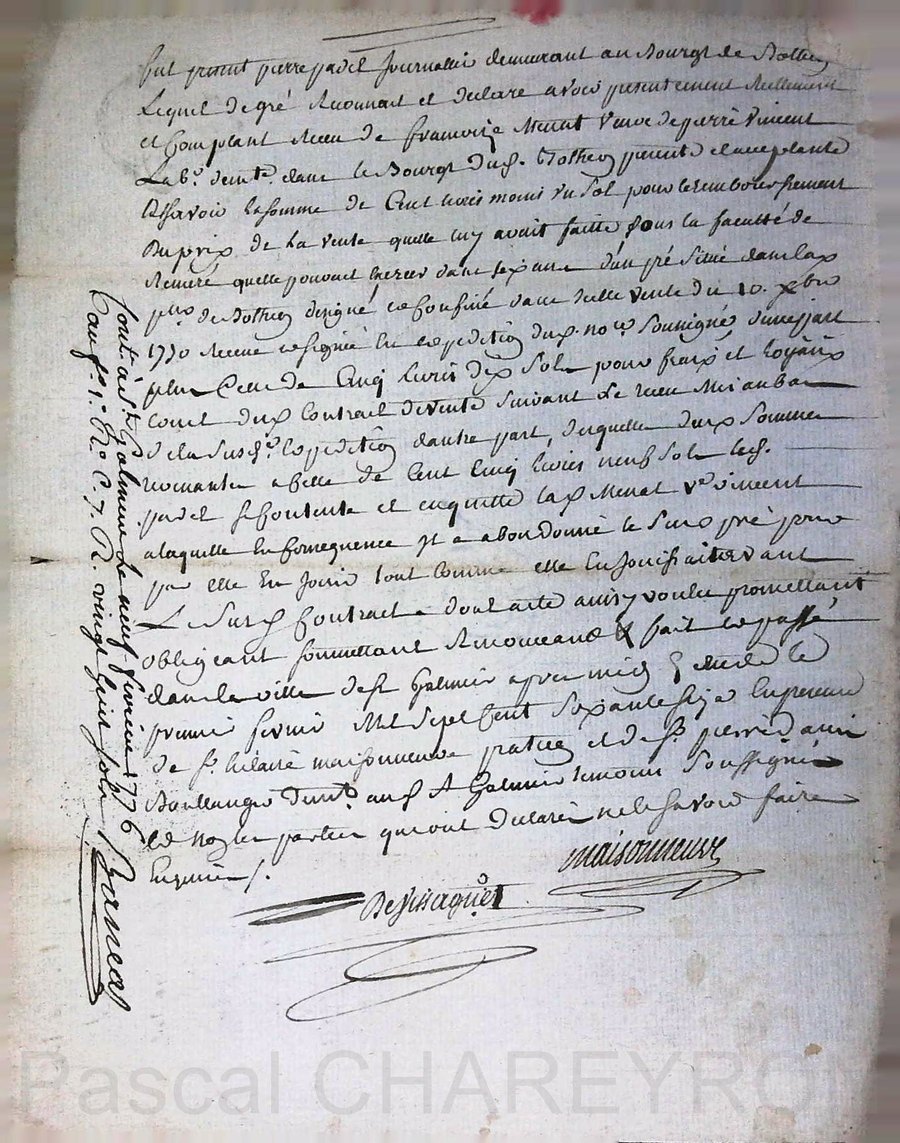 fut present pierre padel Journalier demeurant au Bourgt de Botheo
Lequel de gré Reconnait et declare avoir presentement Reellement
et Comptant Receu de francoise Menat veuve de pierre vincent
Lab.r demt. dans le Bourgt dud. Botheo presente et acceptante
assavoir la somme de Cent livres moins un sol pour le remboursement
Du prix de la vente quelle luy avait faitte sous la faculté de
Remeré quelle pouvait exercer dans six ans d'un pré situé dans la
psse de Botheo designé et confiné dans ladte vente du 10. xbre
1770 Receue et signée en expedition du no.re soussigné d'une part
plus Celle de Cinq livres dix sols pour fraix et loyaux
cout dud. Contract de vente suivant le receu mis au bas
de la susd. Expedition d'autre part, desquelles deux sommes
revenantes a Celle de Cent Cinq livres neuf sols led.
padel se Contente et en quitte lad. Menat ve. vincent
a laquelle en Consequence il a abondonné le susd. pré pour
par elle En Jouir tout Comme elle En Jouissait avant
Le Susd. Contract dont acte ainsy voulu promettant
obligeant soumettant Renonceant & fait et passé
dans la ville de st. Galmier apres midy le
premier fevrier Mil Sept Cent Soixante seize En presence
de sr. hilaire maisonneuve praticien et de sr. pierre
Boullanger demt. aud. st Galmier temoins Soussignés
et non les parties qui ont Declaré ne le Savoir faire
Enquises /.
maisonneuve
Con.lé à St. Galmier le neuf fevrier 1776
vingt huit sols
Pascal CHAREYRON